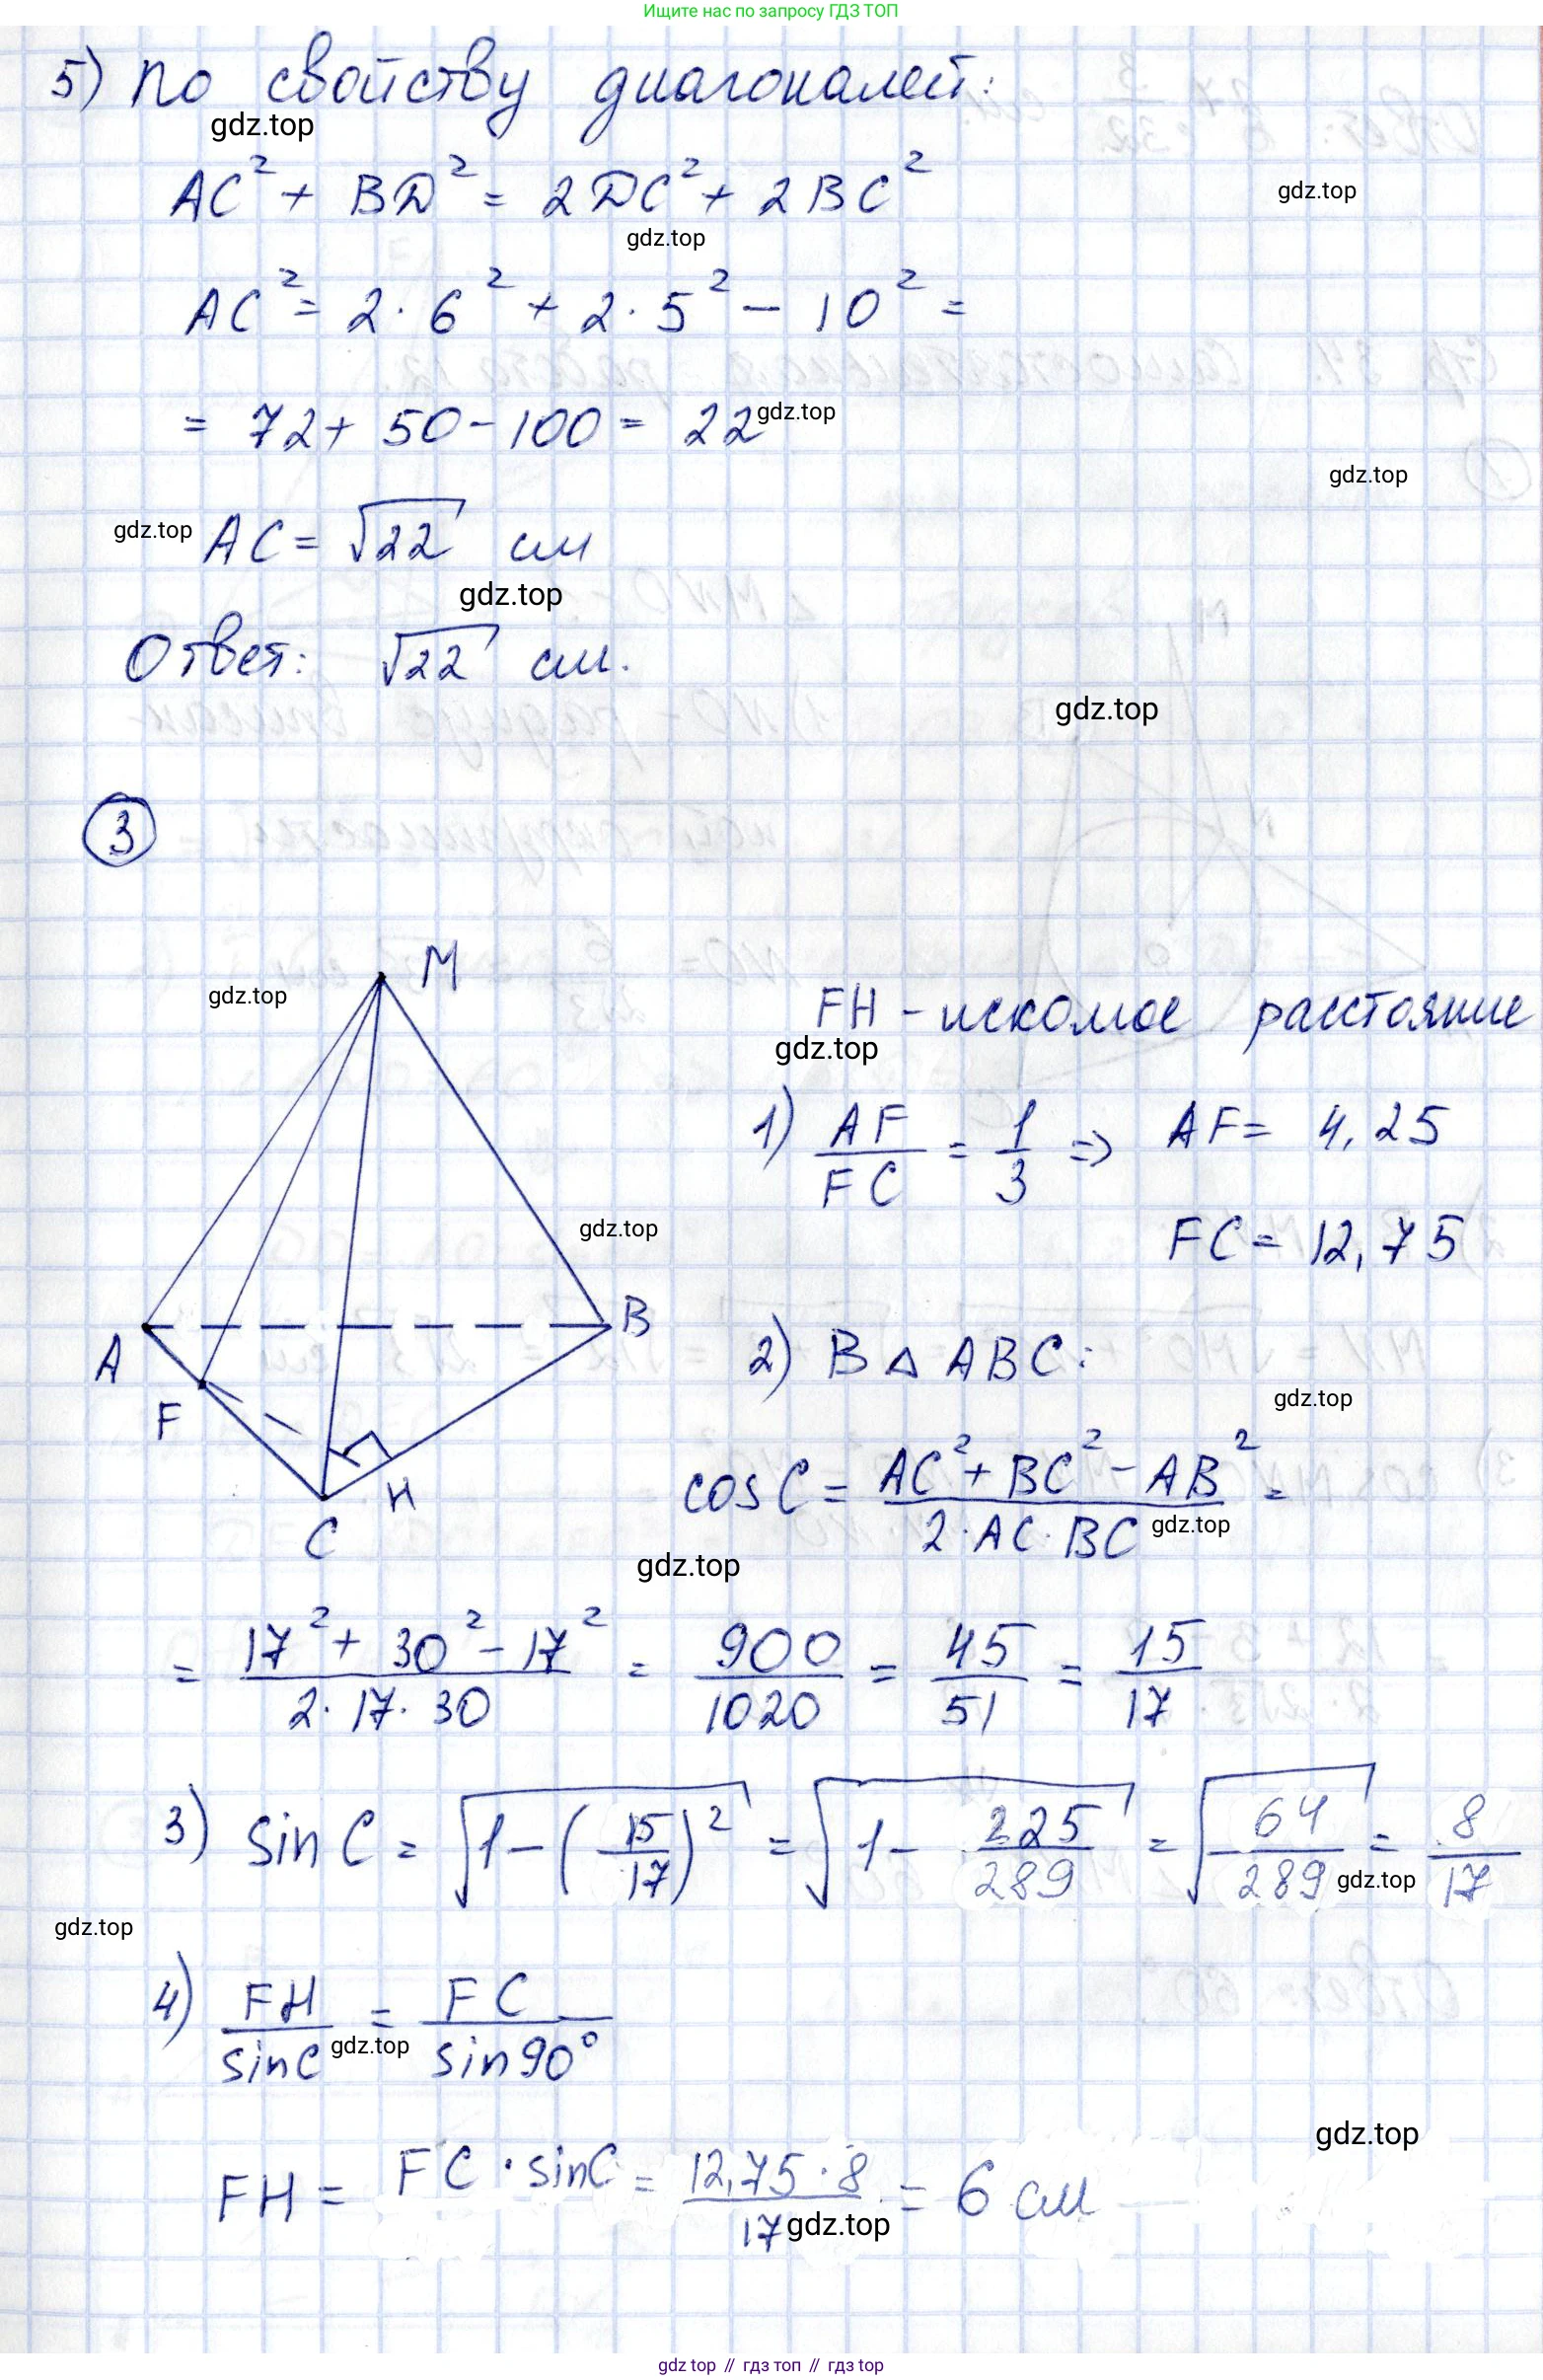 Ищите нас по запросу ГДЗ ТОП
5) По свойству диагоналей:
gdz.top
AC² + BD² = 2DC² + 2BC²
gdz.top
gdz.top
AC² = 2·6² + 2·5² – 10² =
= 72 + 50 – 100 = 22
gdz.top
gdz.top
gdz.top
AC = √22 см
gdz.top
Ответ: √22 см.
gdz.top
3
M
gdz.top
FH – искомое расстояние
gdz.top
1) AF/FC = 1/3 ⇒ AF = 4,25
FC = 12,75
gdz.top
A
B
F
C
H
2) В △ ABC:
gdz.top
cos C = (AC² + BC² – AB²)/(2·AC·BC) =
gdz.top
gdz.top
= (17² + 30² – 17²)/(2·17·30) = 900/1020 = 45/51 = 15/17
3) sin C = √(1 – (15/17)²) = √(1 – 225/289) = √(64/289) = 8/17
gdz.top
gdz.top
4) FH/sinC = FC/sin90°
gdz.top
gdz.top
FH = FC · sinC = (12,75·8)/17 = 6 см
gdz.top
gdz.top // гдз топ // gdz.top